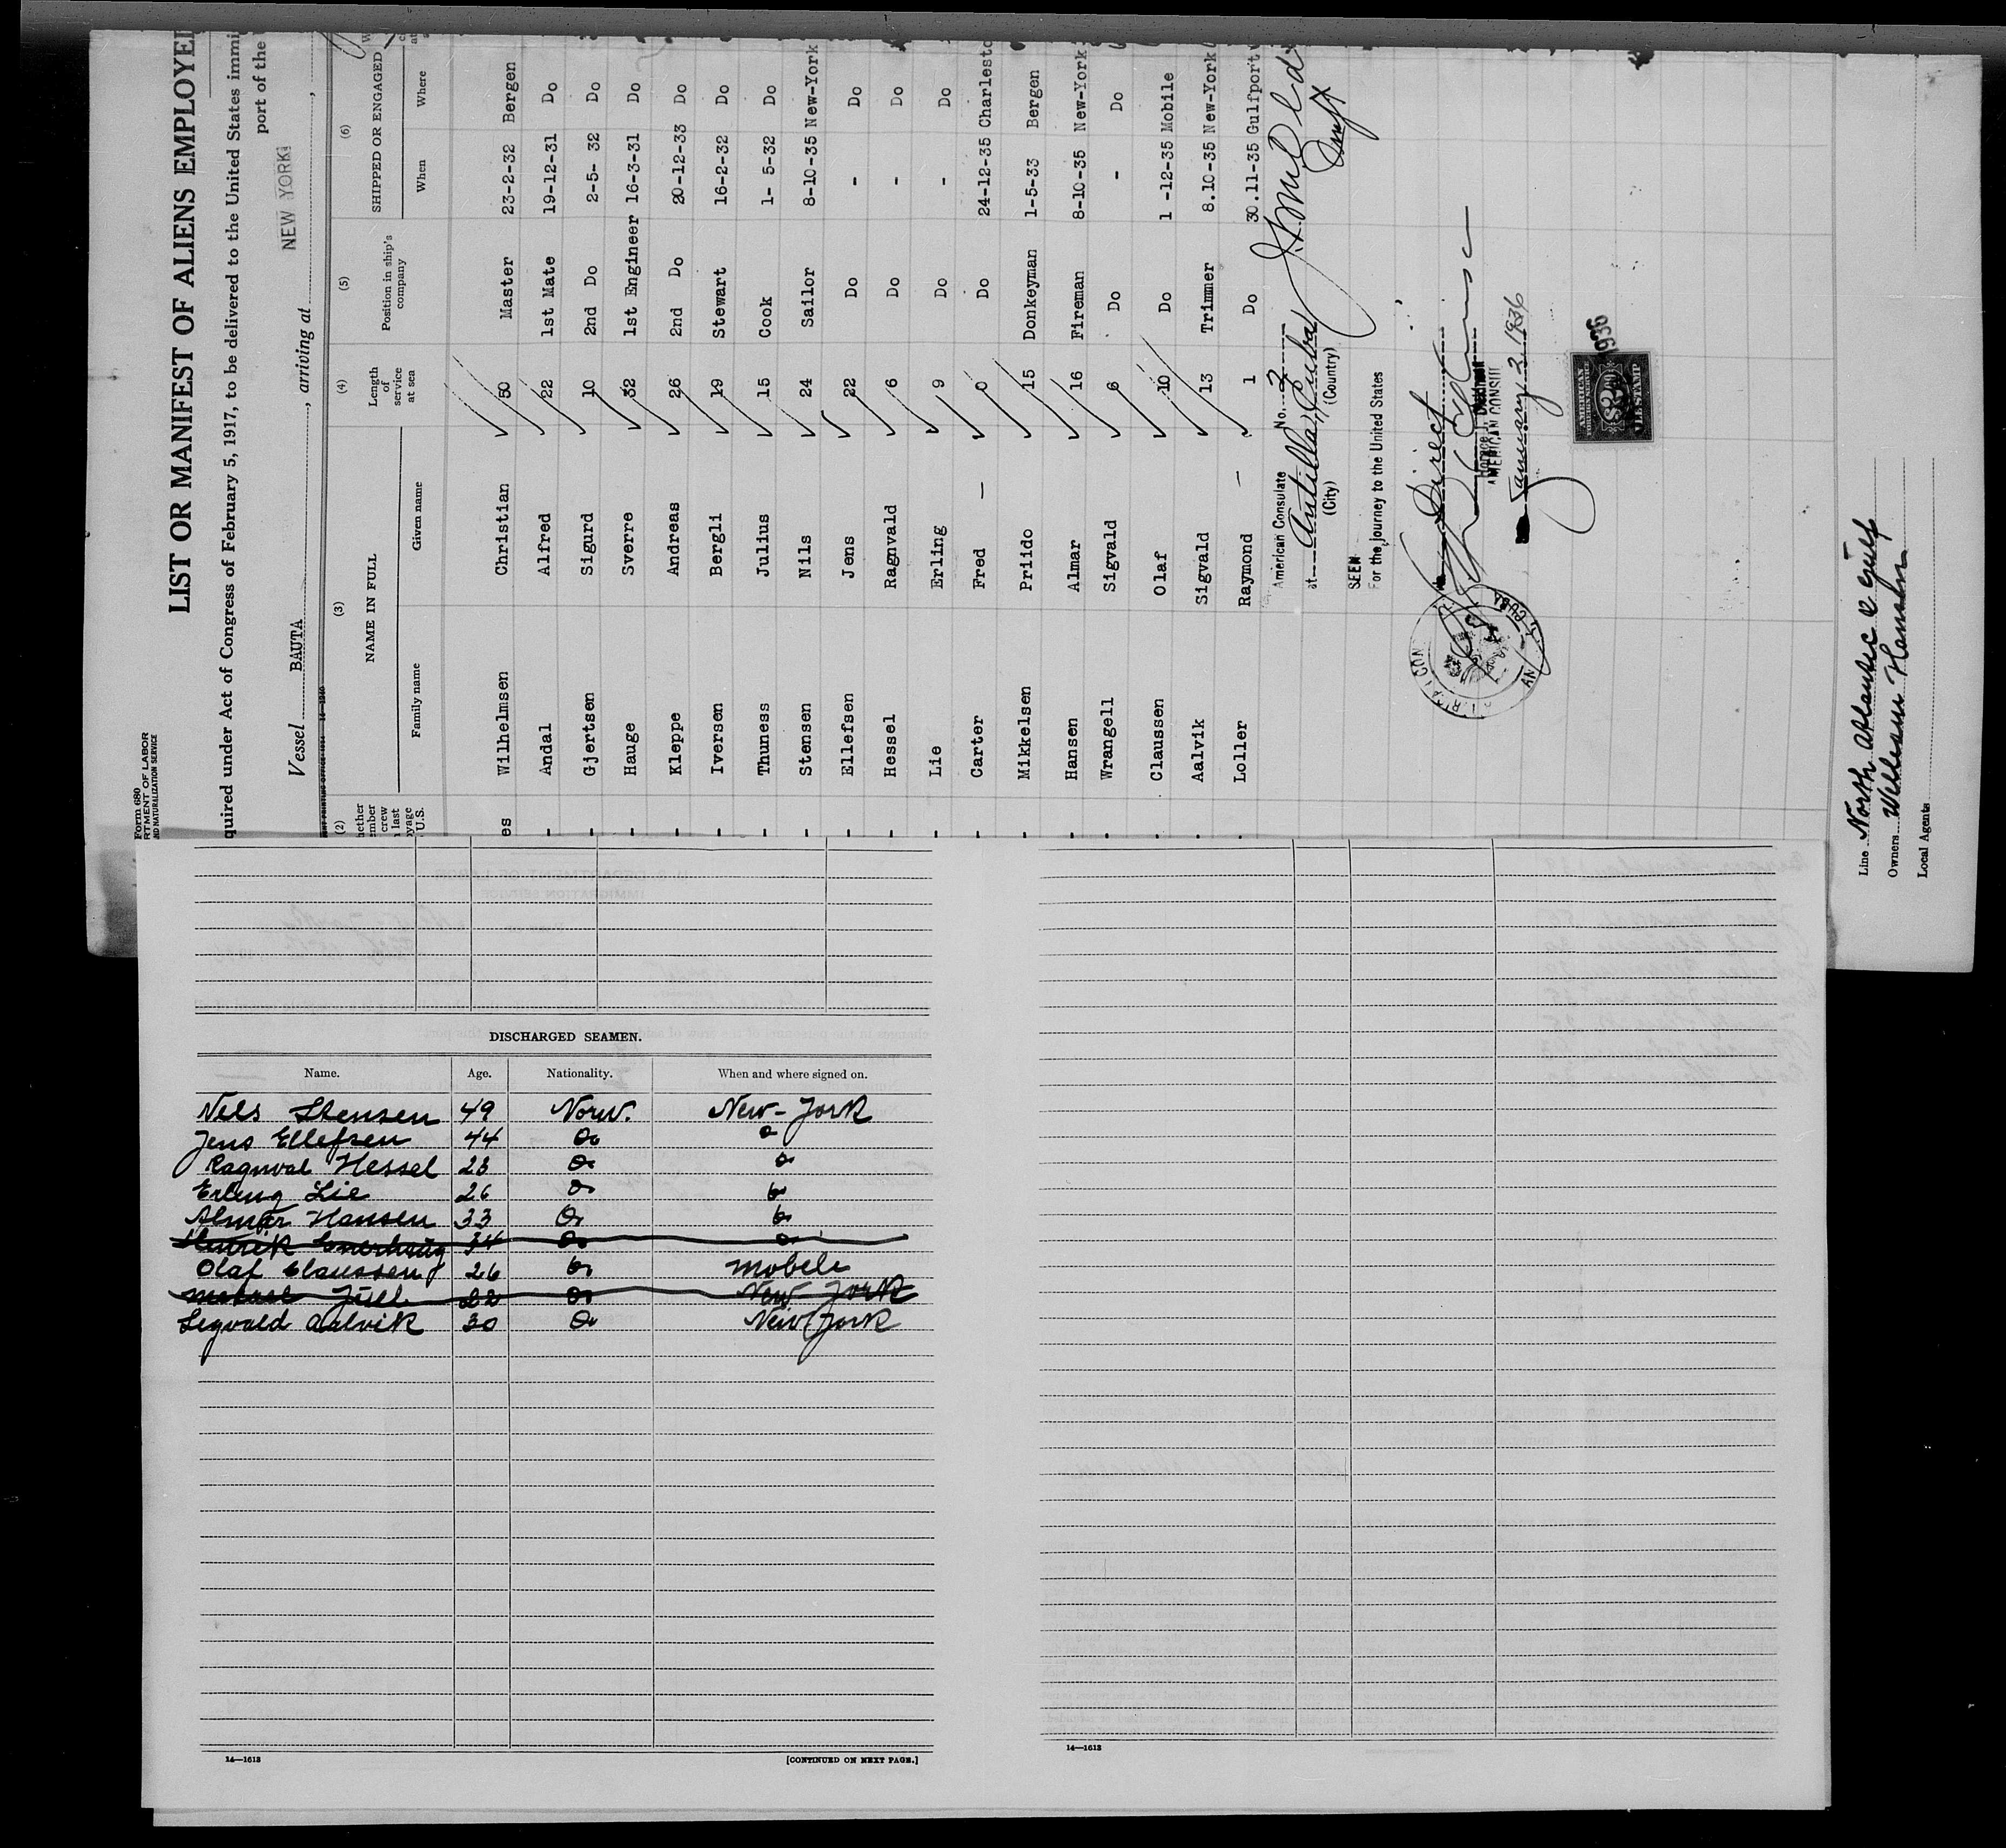 Form 680
RTMENT OF LABOR
ND NATURALIZATION SERVICE
LIST OR MANIFEST OF ALIENS EMPLOYED
quired under Act of Congress of February 5, 1917, to be delivered to the United States immi
port of the
Vessel BAUTA, arriving at NEW YORK
(2) (3) (4) (5) (6)
hether ember crew last oyage U.S.
NAME IN FULL
Family name Given name
Length of service at sea
Position in ship's company
SHIPPED OR ENGAGED
When Where
es Wilhelmsen Christian 50 Master 23-2-32 Bergen
- Andal Alfred 22 1st Mate 19-12-31 Do
- Gjertsen Sigurd 10 2nd Do 2-5- 32 Do
- Hauge Sverre 32 1st Engineer 16-3-31 Do
- Kleppe Andreas 26 2nd Do 20-12-33 Do
- Iversen Bergli 19 Stewart 16-2-32 Do
- Thuness Julius 15 Cook 1- 5-32 Do
- Stensen Nils 24 Sailor 8-10-35 New-York
- Ellefsen Jens 22 Do - Do
- Hessel Ragnvald 6 Do - Do
- Lie Erling 9 Do - Do
- Carter Fred — 0 Do 24-12-35 Charlesto
- Mikkelsen Priido 15 Donkeyman 1-5-33 Bergen
- Hansen Almar 16 Fireman 8-10-35 New-York
- Wrangell Sigvald 6 Do - Do
- Claussen Olaf 10 Do 1 -12-35 Mobile
- Aalvik Sigvald 13 Trimmer 8.10-35 New-York
- Loller Raymond — 1 Do 30.11-35 Gulfport
American Consulate No. 2
at Antilla, Cuba
(City) (Country)
SEEN
For the journey to the United States
Direct
AMERICAN CONSUL
January 2 1936
CUBA
AMERICAN
FOREIGN SERVICE
$2
FEE STAMP
1936
Line North Atlantic & Gulf
Owners William Hansen
Local Agents
DISCHARGED SEAMEN.
Name. Age. Nationality. When and where signed on.
Nels Stensen 49 Norw. New-York
Jens Ellefsen 44 Do Do
Ragnval Hessel 23 Do Do
Erling Lie 26 Do Do
Almar Hansen 33 Do Do
Henrik 34 Do Do
Olaf Claussen 26 Do Mobele
Juell 22 Do New-York
Segvald Aalvik 30 Do New York
14—1613
[CONTINUED ON NEXT PAGE.]
14—1613